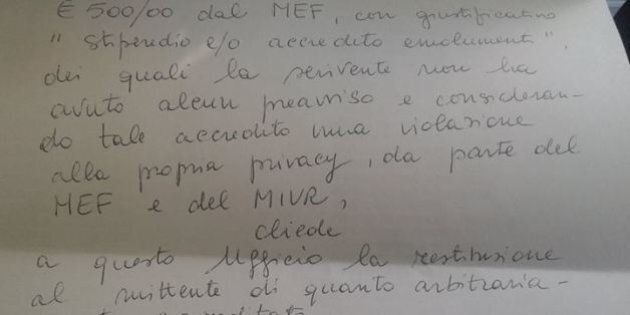 € 500/00 dal MEF, con giustificativo
"stipendio e/o accredito emolumenti",
dei quali la scrivente non ha
avuto alcun preavviso e consideran-
do tale accredito una violazione
alla propria privacy, da parte del
MEF e del MIUR,
chiede
a questo Ufficio la restituzione
al mittente di quanto arbitraria-